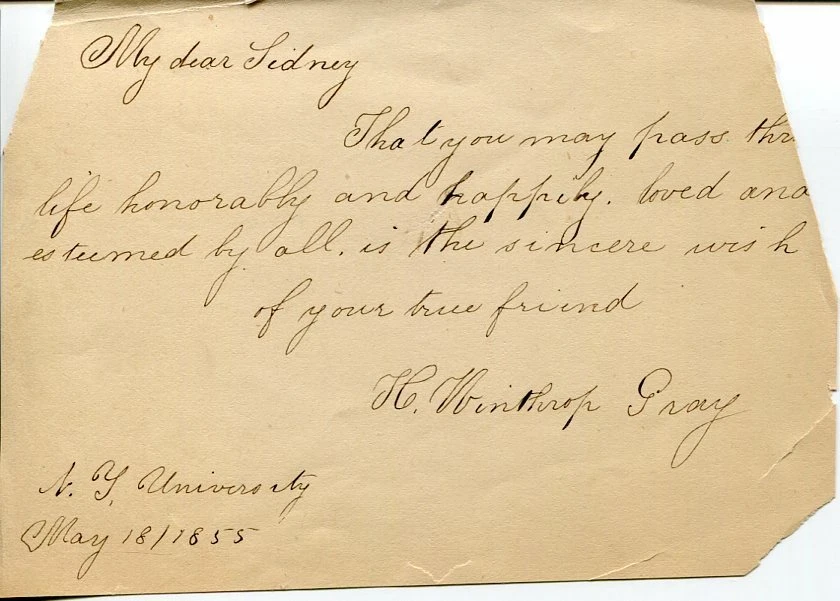 My dear Sidney
That you may pass thr
life honorably and happily. loved and
esteemed by all. is the sincere wish
of your true friend
H. Winthrop Gray
N. Y. University
May 18/1855